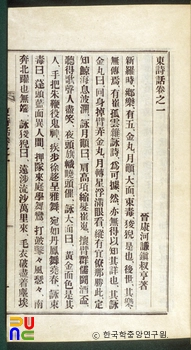 東詩話卷之一
晉康河謙鎭叔亨著
新羅時鄕樂有五金丸月顚大面束毒狻猊是也後世其聲
無傳焉有崔孤雲雜詠詩爲可據然亦僅得以知其詳也其詠
金丸曰回身掉臂弄金丸月轉星浮滿眼看縱有宜僚那勝此定
知鯨海息波瀾詠月顚曰肩高項縮髮崔嵬攘臂群儒鬪酒盃
聽得歌聲人盡笑夜頭旗幟曉頭催詠大面曰黃金面色是其
人手把珠鞭役鬼神疾步徐趨呈雅舞宛如丹鳳舞堯春詠束
毒曰蓬頭藍面異人間押隊來庭學舞鸞打鼓鼕鼕風瑟瑟南
奔北躍也無端詠狻猊曰遠涉流沙萬里來毛衣破盡着塵埃
한국학중앙연구원